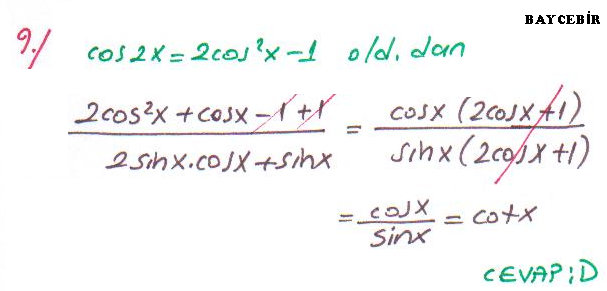 BAYCEBİR
9./ cos2x = 2cos²x - 1 old. dan
(2cos²x + cosx - 1 + 1) / (2sinx.cosx + sinx) = (cosx (2cosx + 1)) / (sinx (2cosx + 1))
= cosx / sinx = cotx
CEVAP: D